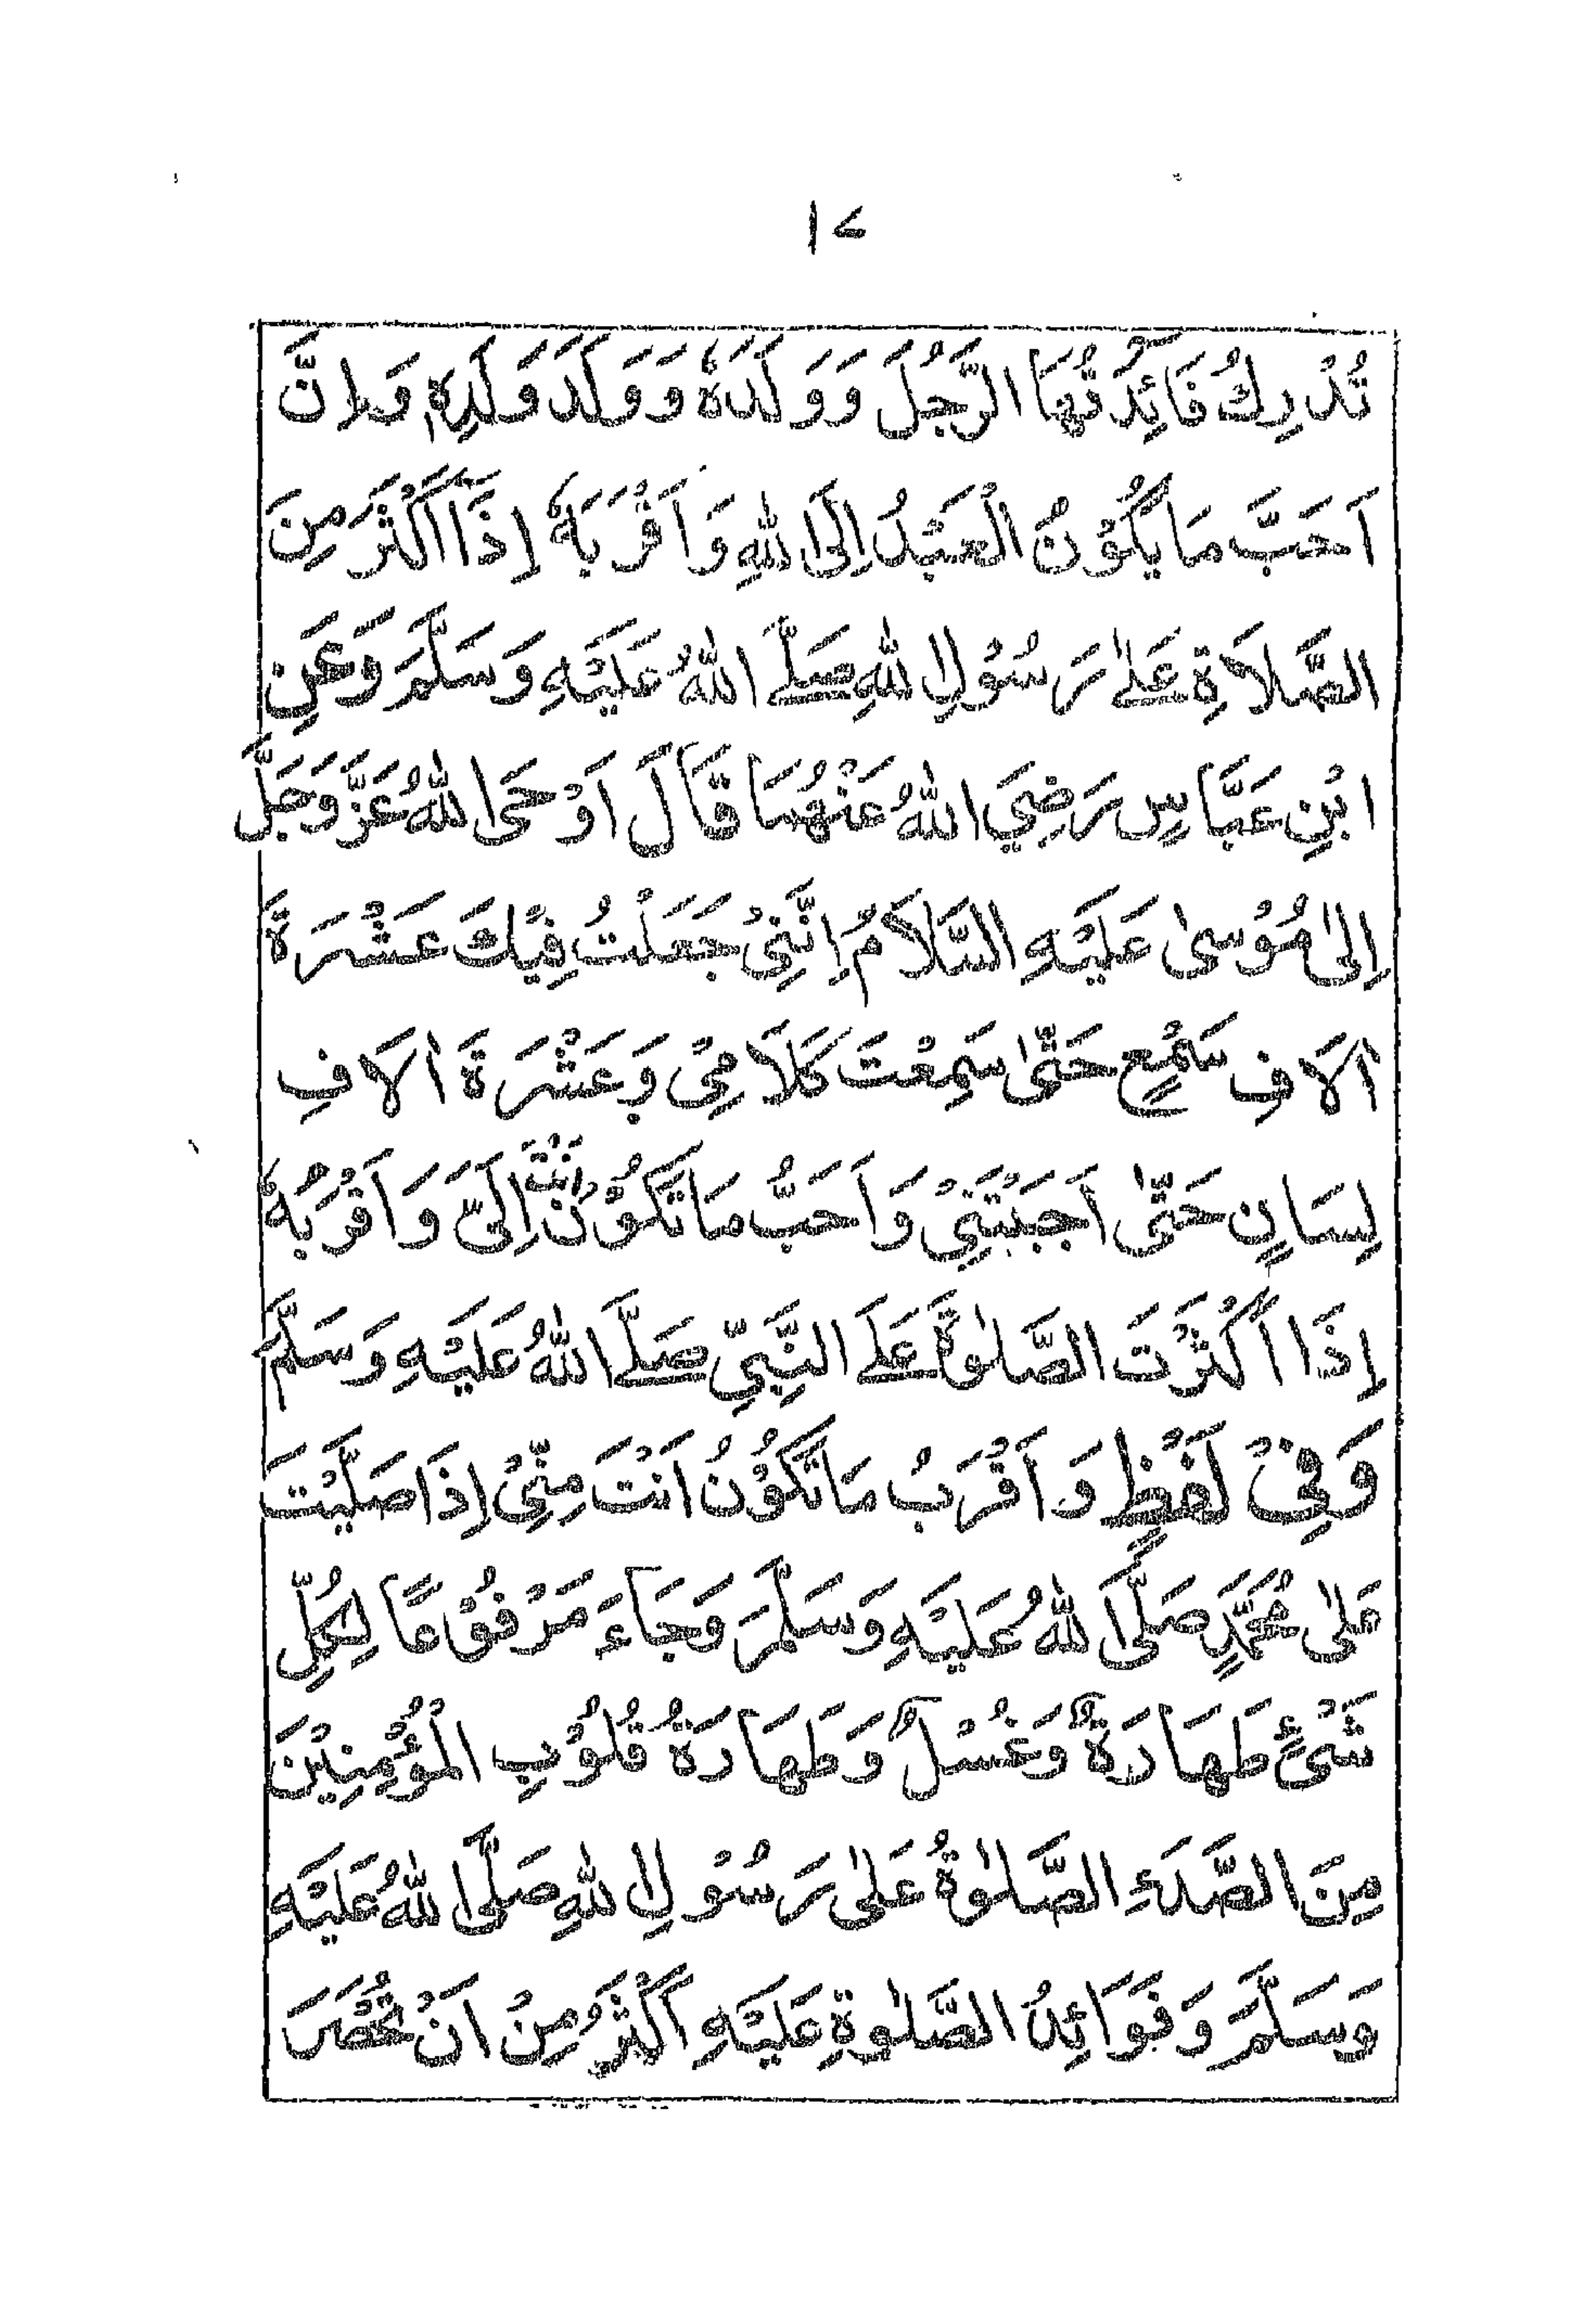 ١٧
تُدْرِكُ فَائِدَتُهَا الرَّجُلَ وَوَلَدَهٗ وَوَلَدَ وَلَدِهٖ وَاِنَّ
اَحَبَّ مَا يَكُوْنُ الْعَبْدُ اِلَى اللهِ وَاَقْرَبَهٗ اِذَا اَكْثَرَ مِنَ
الصَّلَاةِ عَلٰى رَسُوْلِ اللهِ صَلَّے اللهُ عَلَيْهِ وَسَلَّمَ وَعَنِ
ابْنِ عَبَّاسٍ رَضِيَ اللهُ عَنْهُمَا قَالَ اَوْحَى اللهُ عَزَّ وَجَلَّ
اِلٰى مُوْسٰى عَلَيْهِ السَّلَامُ اِنَّنِيْ جَعَلْتُ فِيْكَ عَشْرَةَ
اٰلَافِ سَمْعٍ حَتّٰى سَمِعْتَ كَلَامِيْ وَعَشْرَةَ اٰلَافِ
لِسَانٍ حَتّٰى اَجَبْتَنِيْ وَاَحَبُّ مَا تَكُوْنُ اَنْتَ اِلَيَّ وَاَقْرَبُهٗ
اِذَا اَكْثَرْتَ الصَّلٰوةَ عَلَے النَّبِيِّ صَلَّے اللهُ عَلَيْهِ وَسَلَّمَ
وَفِيْ لَفْظٍ وَاَقْرَبُ مَا تَكُوْنُ اَنْتَ مِنِّيْ اِذَا صَلَّيْتَ
عَلٰى مُحَمَّدٍ صَلَّى اللهُ عَلَيْهِ وَسَلَّمَ وَجَآءَ مَرْفُوْعًا لِكُلِّ
شَيْءٍ طَهَارَةٌ وَغُسْلٌ وَطَهَارَةُ قُلُوْبِ الْمُؤْمِنِيْنَ
مِنَ الصَّدَءِ الصَّلٰوةُ عَلٰى رَسُوْلِ اللهِ صَلَّى اللهُ عَلَيْهِ
وَسَلَّمَ وَفَوَائِدُ الصَّلٰوةِ عَلَيْهِ اَكْثَرُ مِنْ اَنْ تُحْصَرَ